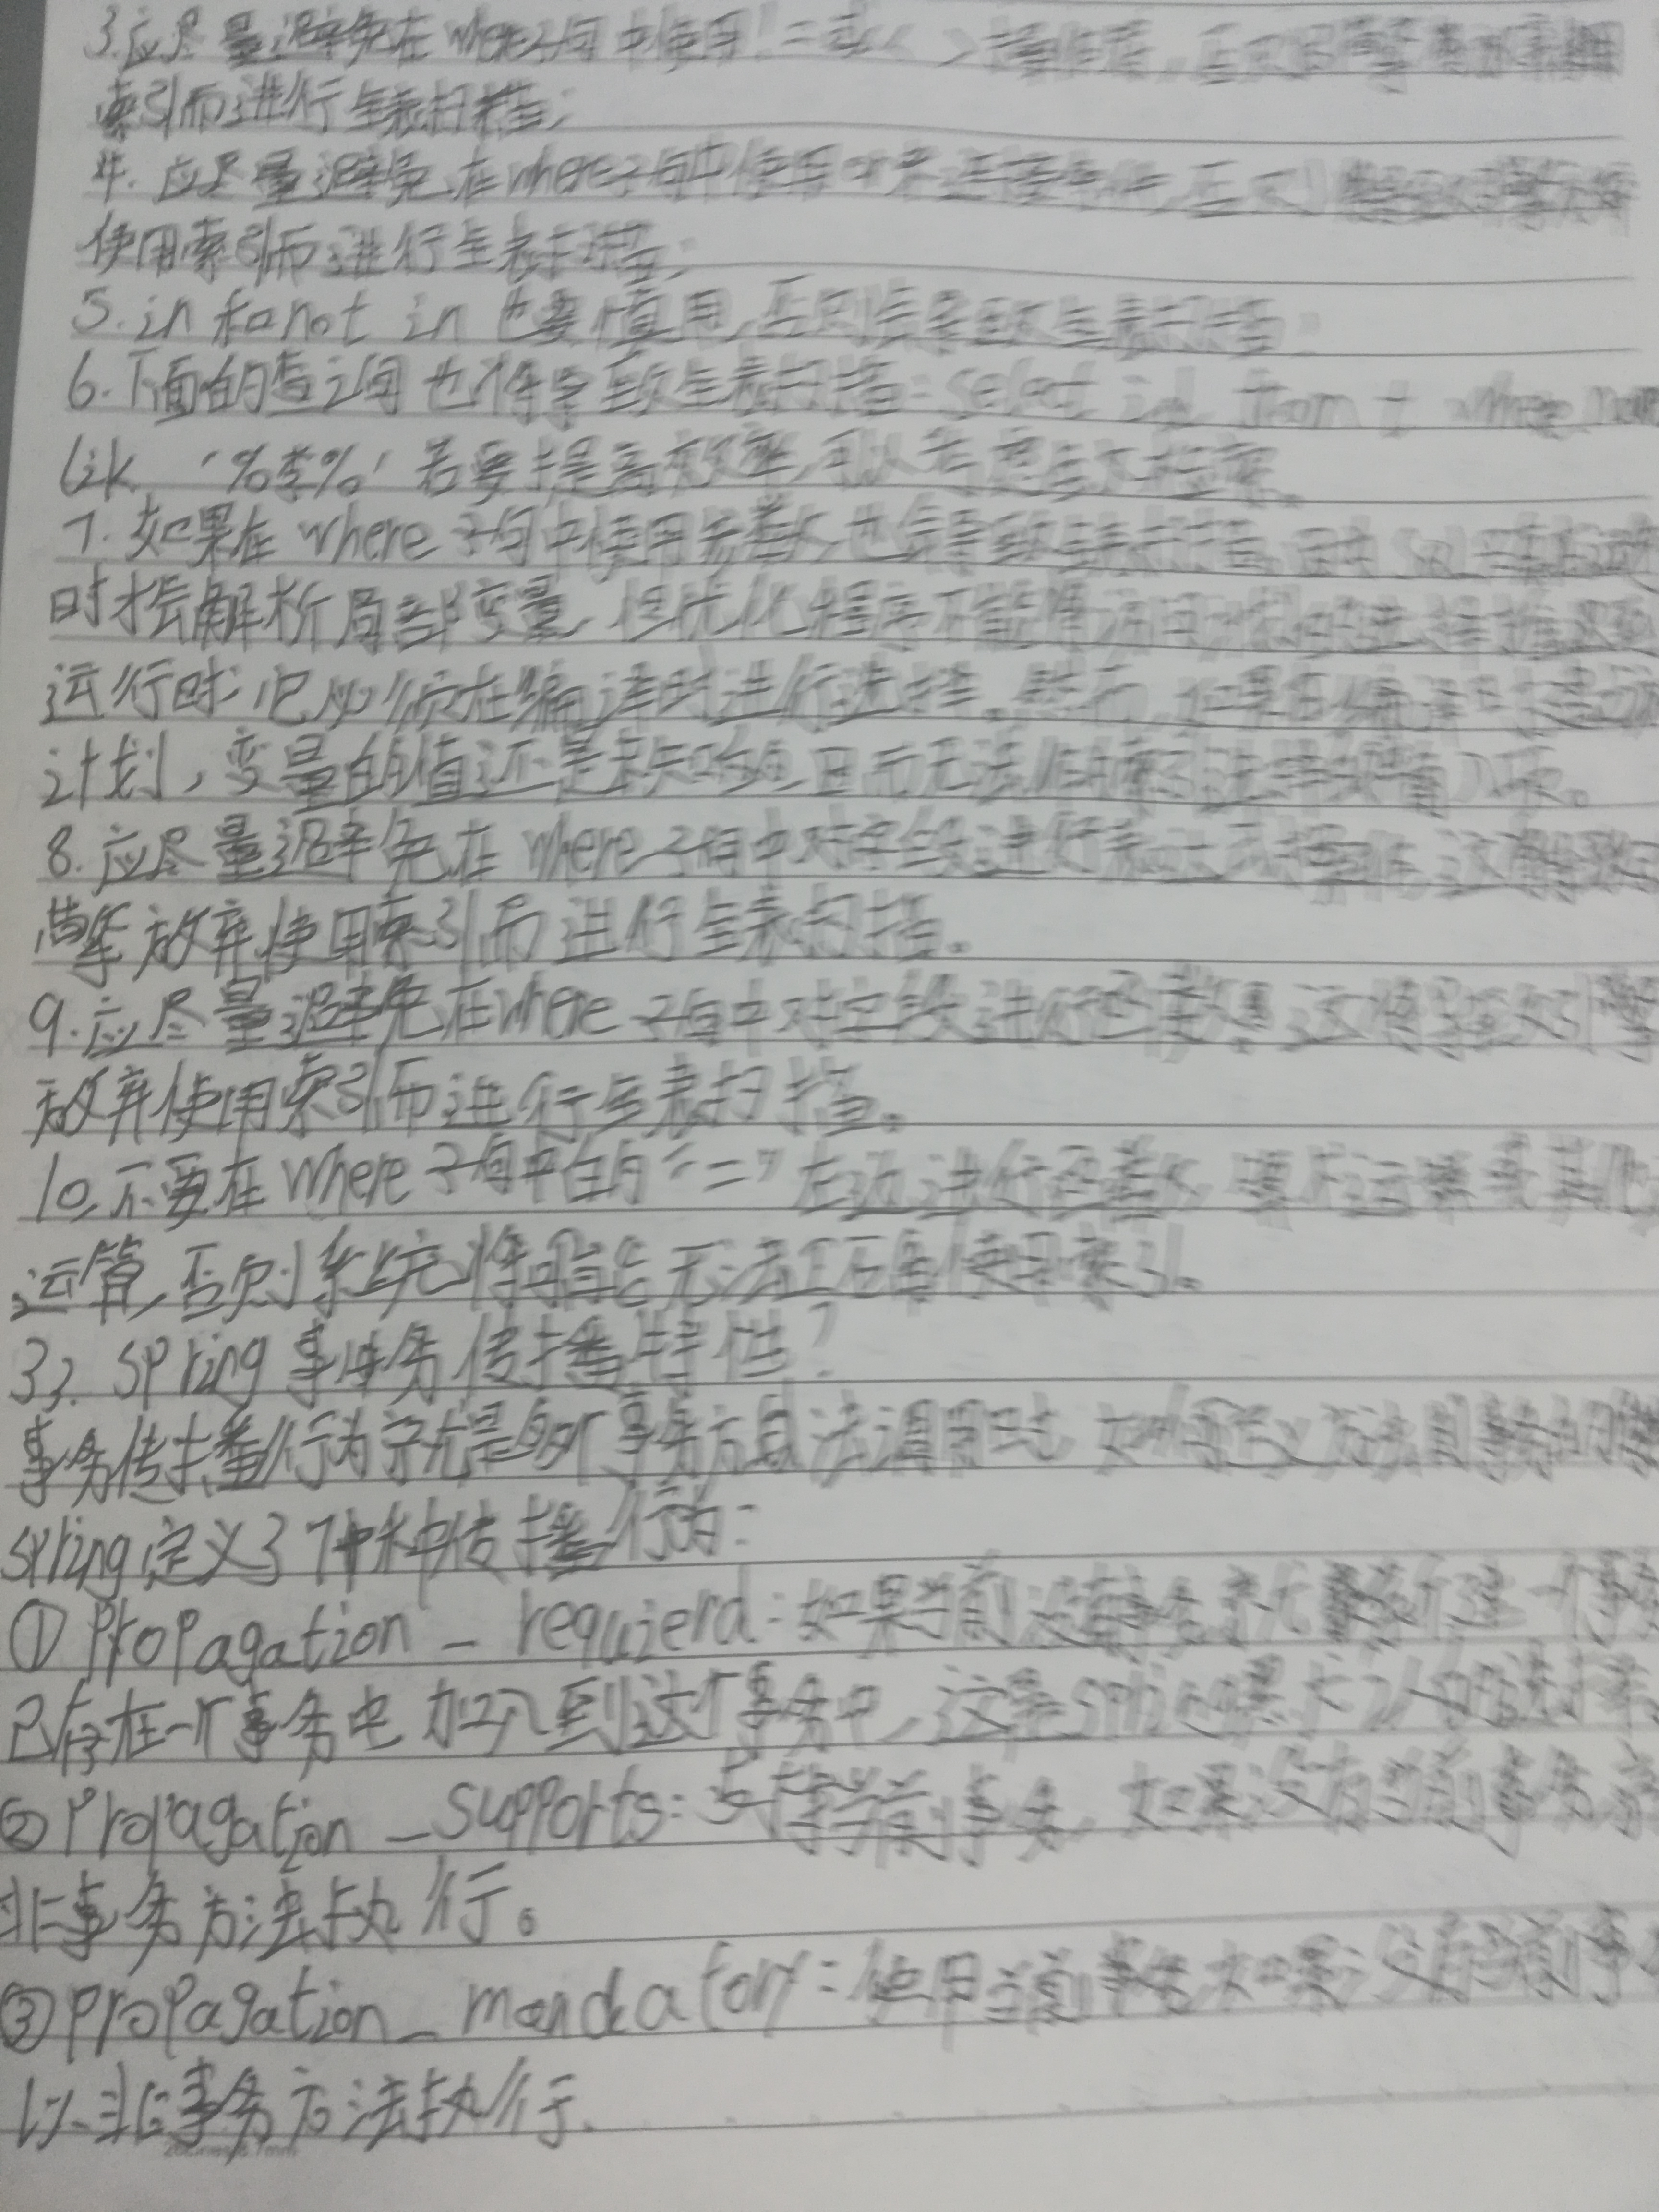 3.应尽量避免在where子句中使用!=或<>操作符,否则引擎将放弃使用
索引而进行全表扫描;
4.应尽量避免在where子句中使用or来连接条件,否则将导致引擎放弃
使用索引而进行全表扫描;
5.in和not in也要慎用,否则会导致全表扫描;
6.下面的查询也将导致全表扫描:select id from t where name
lik '%李%'若要提高效率,可以考虑全文检索。
7.如果在where子句中使用参数,也会导致全表扫描。因为sql只有在运行
时才会解析局部变量,但优化程序不能将访问计划的选择推迟到
运行时;它必须在编译时进行选择。然而,如果在编译时建立访问
计划,变量的值还是未知的,因而无法作为索引选择的输入项。
8.应尽量避免在where子句中对字段进行表达式操作,这将导致引
擎放弃使用索引而进行全表扫描。
9.应尽量避免在where子句中对字段进行函数操作,这将导致引擎
放弃使用索引而进行全表扫描。
10.不要在where子句中的“=”左边进行函数、算术运算或其他
运算,否则系统将可能无法正确使用索引。
33.spring事务传播特性?
事务传播行为就是多个事务方法调用时,如何定义方法间事务的传播
spring定义了7种传播行为:
①propagation_requierd:如果当前没有事务,就新建一个事务
已存在一个事务中,加入到这个事务中,这是spring默认的选择
②propagation_supports:支持当前事务,如果没有当前事务,
非事务方法执行。
③propagation_mandatory:使用当前事务,如果没有当前事务
以非事务方法执行.